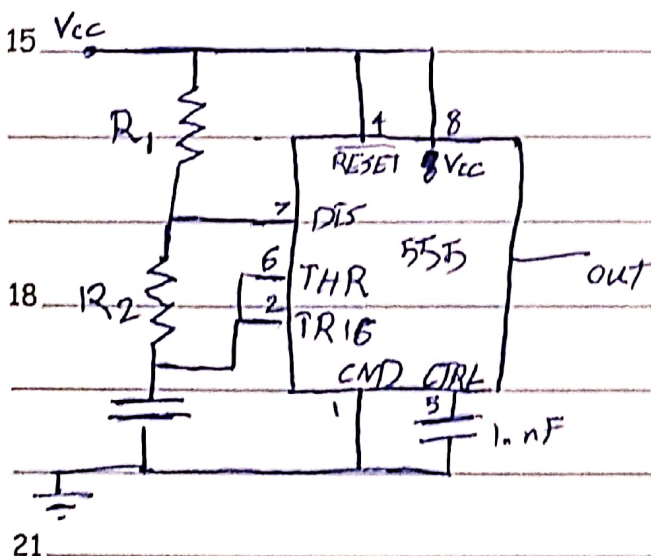 15 Vcc
R1
4 8
RESET Vcc
7 DIS
555
6 THR
OUT
18 R2
2 TRIG
GND CTRL
1 5
nF
21